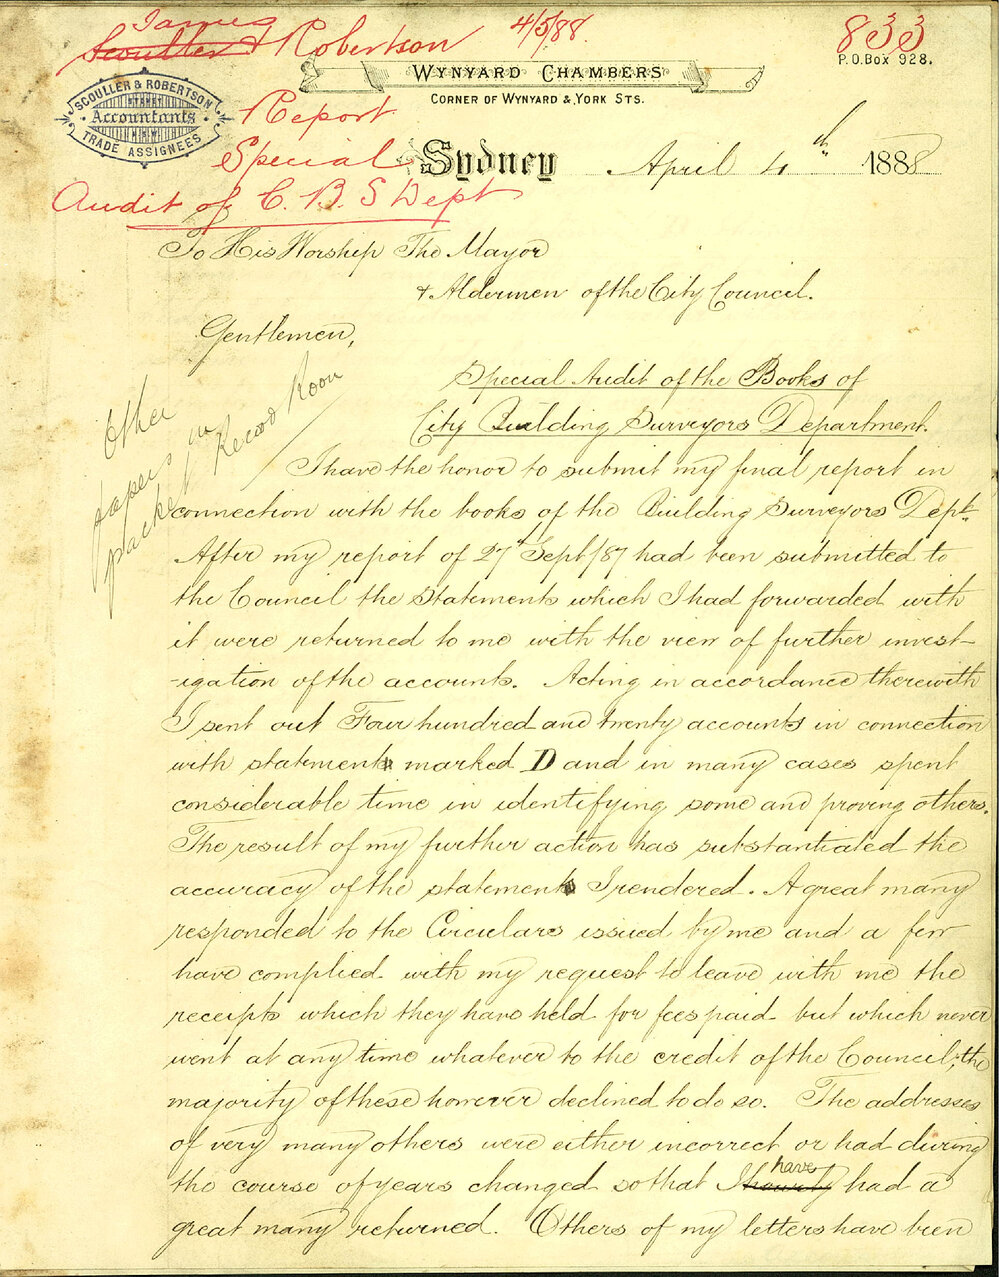 James
Scouller & Robertson 4/5/88 833
P.O. Box 928.
WYNYARD CHAMBERS
CORNER OF WYNYARD & YORK STS.
SCOULLER & ROBERTSON
SYDNEY
Accountants
N.S.W.
TRADE ASSIGNEES
Report
Special
Audit of C. B. S Dept
Sydney April 4th 1888
To His Worship The Mayor
& Aldermen of the City Council.
Gentlemen,
Other
papers in
packet Record Room
Special Audit of the Books of
City Building Surveyors Department.
I have the honor to submit my final report in
connection with the books of the Building Surveyors Dept.
After my report of 27th Sept/87 had been submitted to
the Council the Statements which I had forwarded with
it were returned to me with the view of further invest-
-igation of the accounts. Acting in accordance therewith
I sent out Four hundred and twenty accounts in connection
with statement marked D and in many cases spent
considerable time in identifying some and proving others.
The result of my further action has substantiated the
accuracy of the statement I rendered. A great many
responded to the Circulars issued by me and a few
have complied with my request to leave with me the
receipts which they have held for fees paid but which never
went at any time whatever to the credit of the Council, the
majority of these however declined to do so. The addresses
of very many others were either incorrect or had during
the course of years changed so that I have had a
great many returned. Others of my letters have been